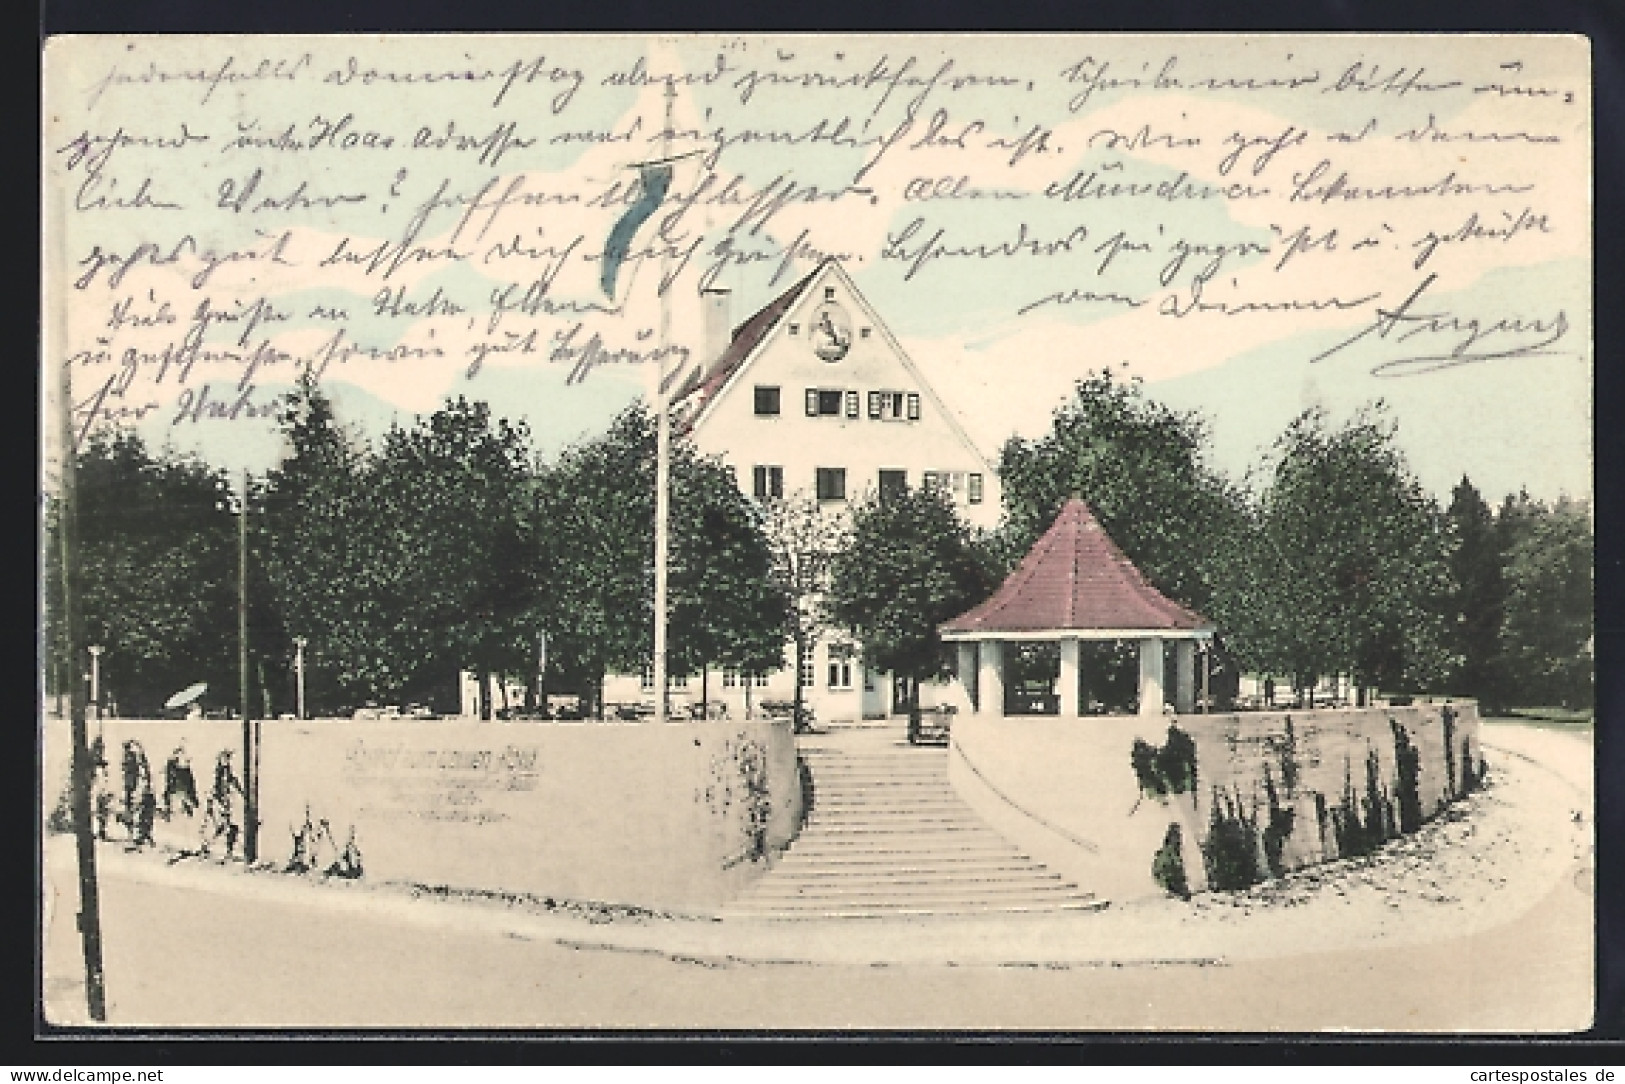 jedenfalls Donnerstag abend zurückfahren. Schreibe mir bitte um-
gehend unter Haas Adresse was eigentlich los ist. Wie geht es denn
lieben Vater? hoffentlich besser. Allen Münchner Bekannten
gehts gut lassen Dich auch Grüßen. Besonders sei gegrüßt u. geküßt
von Deinem August
Viele Grüße an Vater, Eltern
u. Geschwister, sowie gut Besserung
für Vater
Gasthof zum
cartespostales de